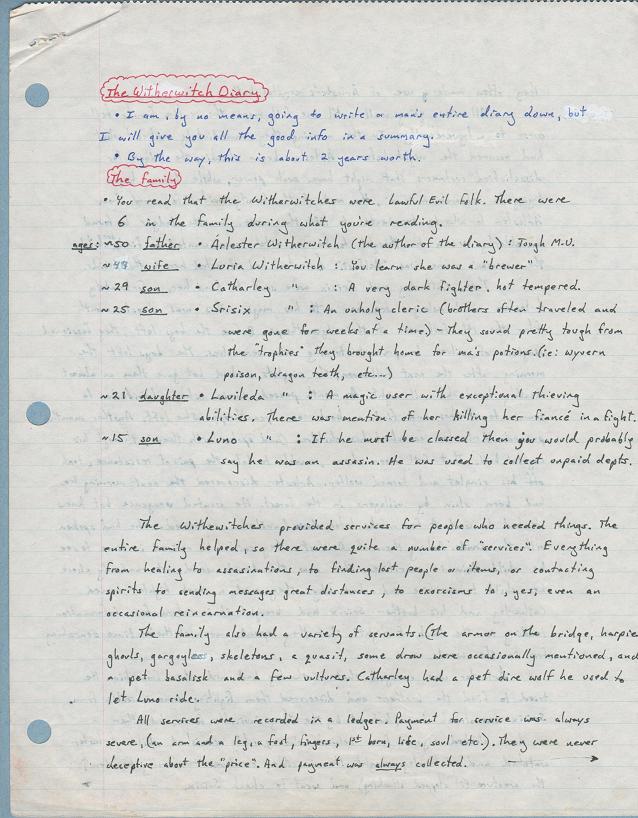 The Witherwitch Diary
• I am, by no means, going to write a man's entire diary down, but
I will give you all the good info in a summary.
• By the way, this is about 2 years worth.
The Family
• You read that the Witherwitches were Lawful Evil folk. There were
6 in the family during what you're reading.
ages: ~50 father • Arlester Witherwitch (the author of the diary) : Tough M.U.
~48 wife • Luria Witherwitch : You learn she was a "brewer"
~29 son • Catharley " : A very dark fighter. hot tempered.
~25 son • Srisix " : An unholy cleric (brothers often traveled and
were gone for weeks at a time) - They sound pretty tough from
the "trophies" they brought home for ma's potions. (ie: wyvern
poison, dragon teeth, etc...)
~21 daughter • Lavileda " : A magic user with exceptional thieving
abilities. There was mention of her killing her fiancé in a fight.
~15 son • Luno " : If he must be classed then you would probably
say he was an assasin. He was used to collect unpaid depts.
The Withewitches provided services for people who needed things. The
entire family helped, so there were quite a number of "services". Everything
from healing to assasinations, to finding lost people or items, or contacting
spirits to sending messages great distances, to exorcisms to, yes, even an
occasional reincarnation.
The family also had a variety of servants. (The armor on the bridge, harpie
ghouls, gargoyless, skeletons, a quasit, some drow were occasionally mentioned, and
a pet basalisk and a few vultures. Catharley had a pet dire wolf he used to
let Luno ride.
All services were recorded in a ledger. Payment for service was always
severe, (an arm and a leg, a foot, fingers, 1st born, life, soul etc.). They were never
deceptive about the "price". And payment was always collected.